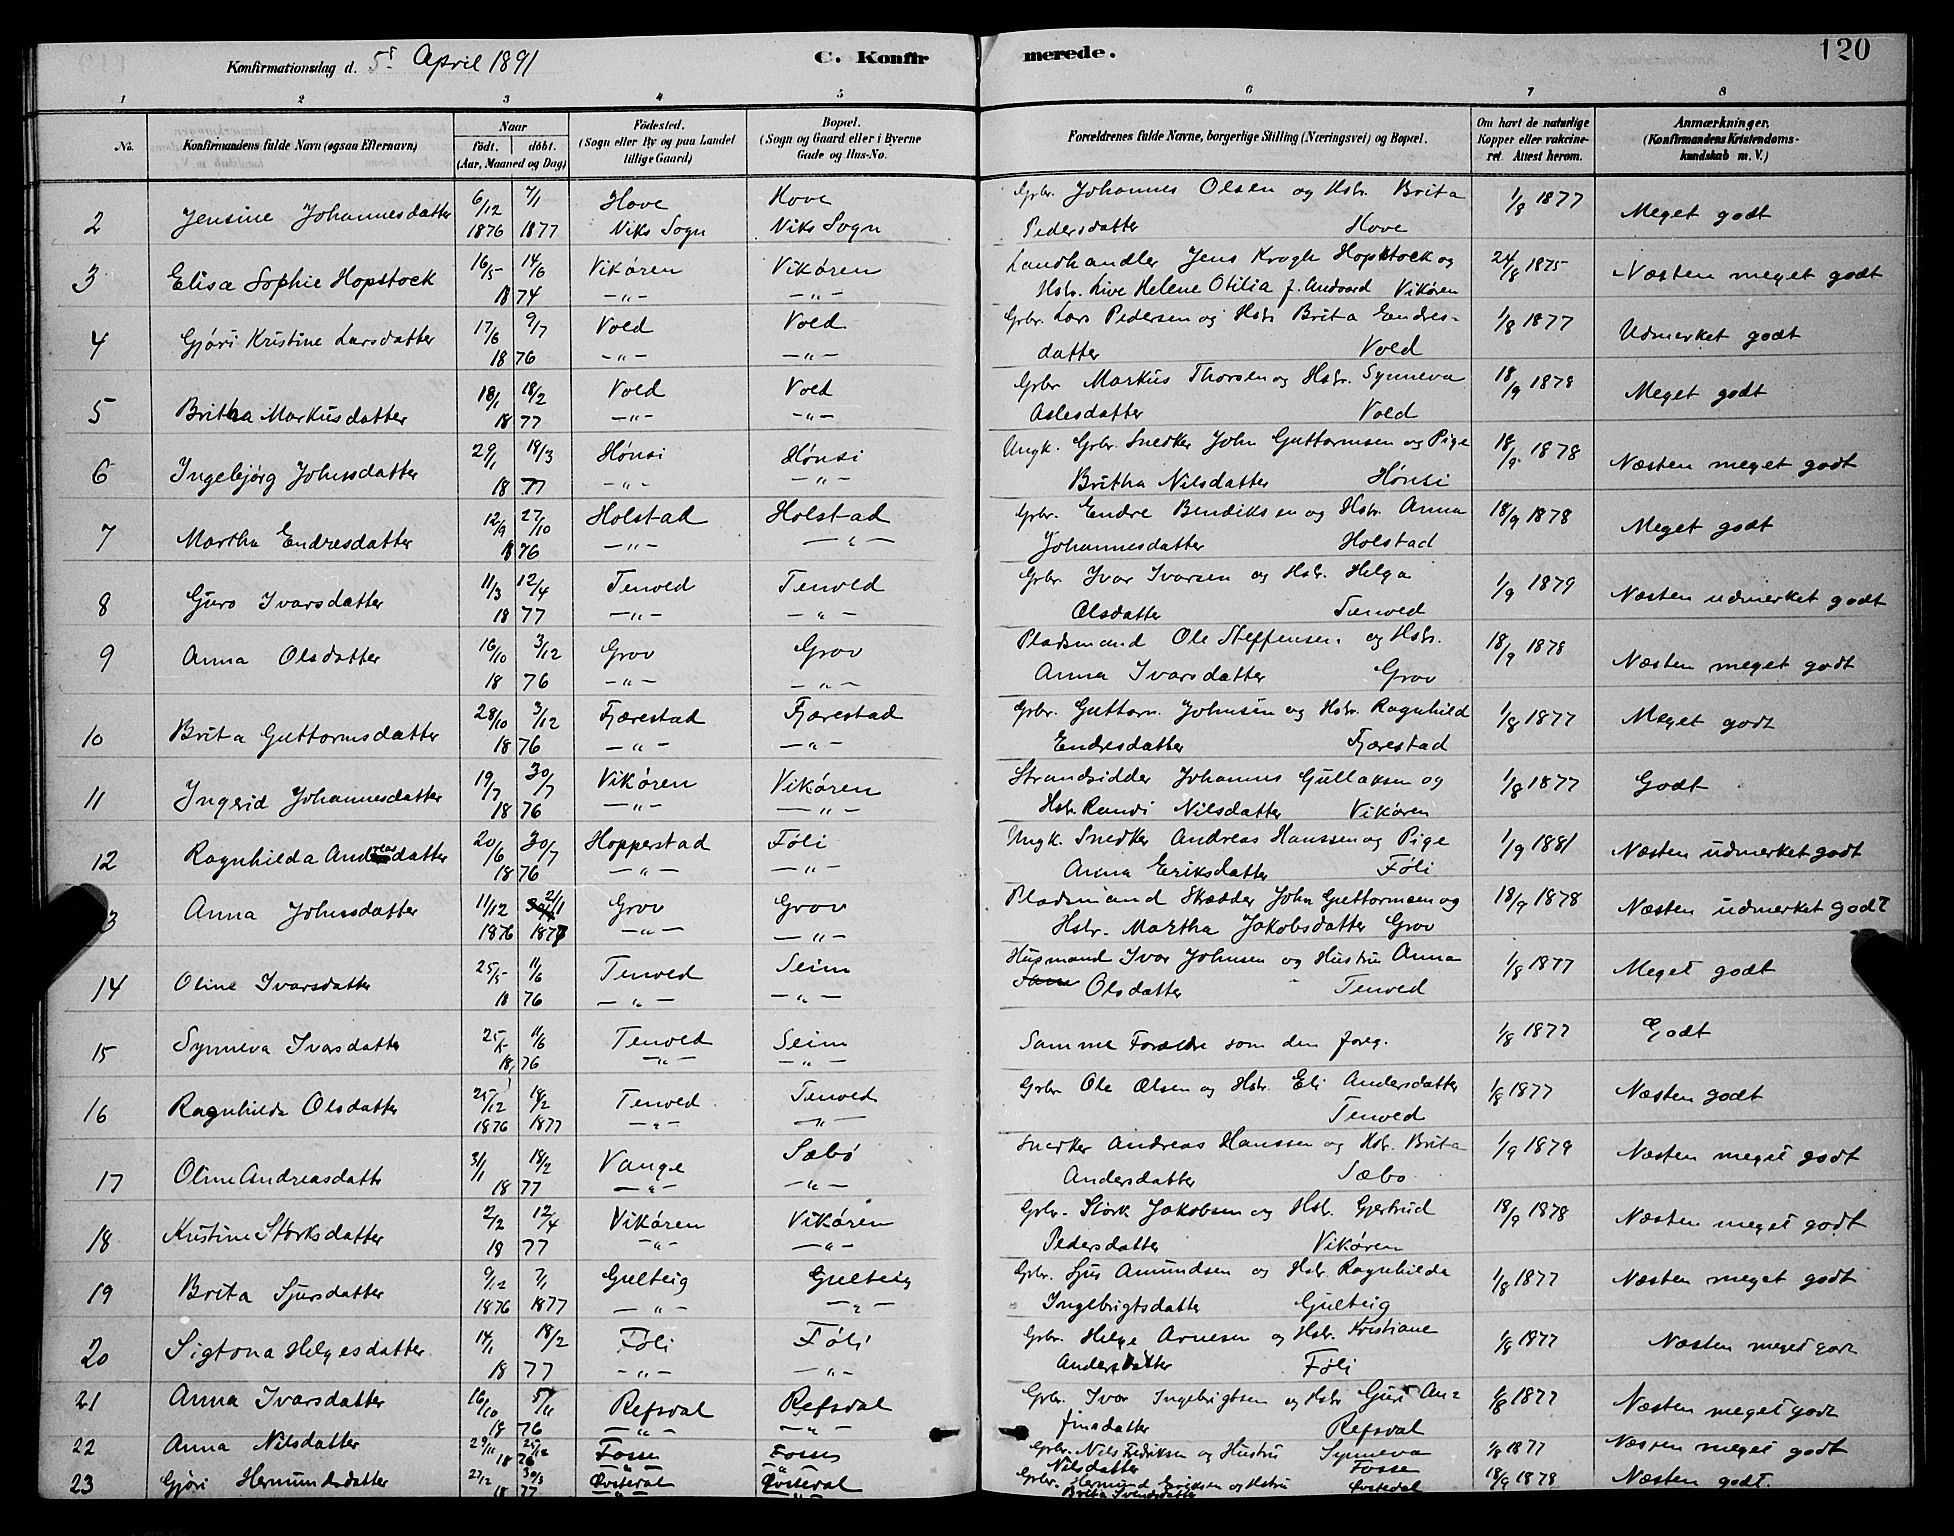 Konfirmationsdag d. 5t April 1891
C. Konfirmerede.
120
1 2 3 4 5 6 7 8
No. Konfirmandens fulde Navn (ogsaa Efternavn) Naar født. døbt. (Aar, Maaned og Dag) Fødested. (Sogn eller By og paa Landet tillige Gaard) Bopæl. (Sogn og Gaard eller i Byerne Gade og Hus-No. Forældrenes fulde Navne, borgerlige Stilling (Næringsvei) og Bopæl. Om havt de naturlige Kopper eller vakcineret. Attest herom. Anmærkninger. (Konfirmandens Kristendomskundskab m. V.)
2 Jensine Johannesdatter 6/12 1876 7/1 1877 Hove Viks Sogn Hove Viks Sogn Grbr. Johannes Olsen og Hstr. Brita Pedersdatter Hove 1/8 1877 Meget godt
3 Elisa Sophie Hopstock 16/5 14/6 1874 Vikøren -"- Vikøren -"- Landhandler Jens Krogh Hopstock og Hstr. Live Helene Otilia f. Andvord Vikøren 24/8 1875 Næsten meget godt
4 Gjøri Kristine Larsdatter 17/6 9/7 1876 Vold -"- Vold -"- Grbr. Lars Pedersen og Hstr Brita Endresdatter Vold 1/8 1877 Udmerket godt
5 Britha Markusdatter 18/1 18/2 1877 Vold -"- Vold -"- Grbr Markus Thorsen og Hstr. Synneva Aslesdatter Vold 18/9 1878 Meget godt
6 Ingebjørg Johnsdatter 29/1 18/3 1877 Hønsi -"- Hønsi -"- Ungk. Grbr. Snedker John Guttormsen og Pige Britha Nilsdatter Hønsi 18/9 1878 Næsten meget godt
7 Martha Endresdatter 12/9 27/10 1876 Holstad -"- Holstad -"- Grbr. Endre Bendiksen og Hstr. Anna Johannesdatter Holstad 18/9 1878 Meget godt
8 Guro Ivarsdatter 11/3 12/4 1877 Tenvold -"- Tenvold -"- Grbr Ivar Ivarsen og Hstr. Helga Olsdatter 1/9 1879 Næsten udmerket godt
9 Anna Olsdatter 16/10 3/12 1876 Grov -"- Grov -"- Pladsmand Ole Steffensen og Hstr. Anna Ivarsdatter Grov 18/9 1878 Næsten meget godt
10 Brita Guttormsdatter 28/10 3/12 1876 Fjærestad -"- Fjærestad -"- Grbr. Guttorm Johnsen og Hstr. Ragnhild Endresdatter Fjærestad 1/8 1877 Meget godt
11 Ingerid Johannesdatter 19/7 30/7 1876 Vikøren -"- Vikøren -"- Strandsidder Johannes Gullaksen og Hstr. Randi Nilsdatter Vikøren 1/8 1877 Godt
12 Ragnhilda Andreasdatter 20/6 30/7 1876 Hopperstad -"- Føli -"- Ungk. Snedker Andreas Hanssen og Pige Anna Eriksdatter Føli 1/9 1881 Næsten udmerket godt
3 Anna Johnsdatter 11/12 1876 21/1 1877 Grov -"- Grov -"- Pladsmand Skrædder John Guttormsen og Hstr. Martha Jakobsdatter Grov 18/9 1878 Næsten udmerket godt
14 Oline Ivarsdatter 25/5 11/6 1876 Tenvold -"- Seim -"- Husmand Ivar Johnsen og Hustru Anna Olsdatter Tenvold 1/8 1877 Meget godt
15 Synneva Ivarsdatter 25/5 11/6 1876 Tenvold -"- Seim -"- Samme Forældre som den foreg. 1/8 1877 Godt
16 Ragnhilda Olsdatter 25/12 1876 18/2 1877 Tenvold -"- Tenvold -"- Grbr Ole Olsen og Hstr. Eli Andersdatter Tenvold 1/8 1877 Næsten godt
17 Oline Andreasdattr 31/1 18/2 1877 Vange -"- Sæbø -"- Snedker Andreas Hanssen og Hstr. Brita Andersdatter Sæbø 1/9 1879 Næsten meget godt
18 Kristine Størksdatter 2/2 12/4 1877 Vikøren -"- Vikøren -"- Grbr. Størk Jakobsen og Hstr. Gjertrud Pedersdatter Vikøren 18/9 1878 Næsten meget godt
19 Brita Sjursdatter 9/12 1876 7/1 1877 Gulteig -"- Gulteig -"- Grbr. Sjur Amundsen og Hstr Ragnhilda Ingebrigtsdatter Gulteig 1/8 1877 Næsten meget godt
20 Sigtona Helgesdatter 14/1 18/2 1877 Føli -"- Føli -"- Grbr. Helge Arnesen og Hstr. Kristiane Andersdatter Føli 1/8 1877 Næsten meget godt
21 Anna Ivarsdatter 16/10 5/11 1876 Refsdal -"- Refsdal -"- Grbr. Ivar Ingebrigtsen og Hstr Guri Anfinsdatter Refsdal 1/8 1877 Næsten meget godt
22 Anna Nilsdatter 29/11 1876 Fosse Fosse Grbr. Nils Fredriksen og Hustru Synneva Nilsdatter Fosse 1/8 1877 Næsten meget godt
23 Gjøri Hermundsdatter 27/2 30/3 1877 Øvstedal Øvstedal Grbr. Hermund Eriksen og Hustru Brita Ivarsdatter Øvstedal 18/9 1878 Næsten godt.